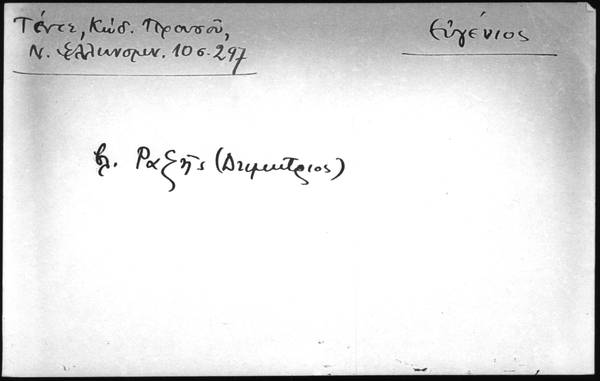 Εὐγένιος
Τένες, Κώδ. Πρασοῦ,
Ν. Ἑλληνομν. 10 σ. 297
βλ. Ραζῆς (Δημήτριος)